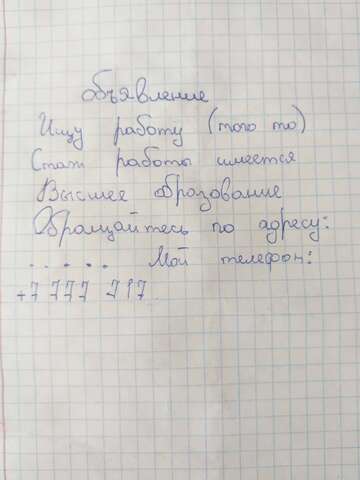 объявление
Ищу работу (того то)
Стаж работы имеется
Высшее образование
Обращайтесь по адресу:
. . . . . Мой телефон:
+7 777 717